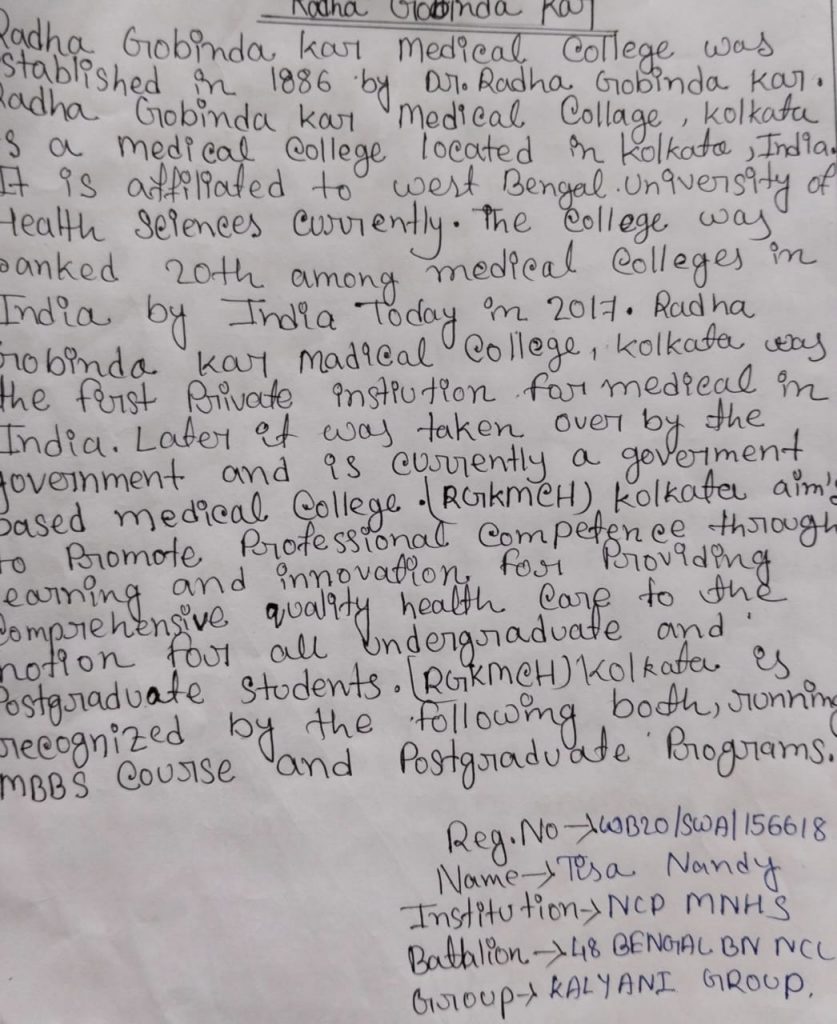 Radha Gobinda Kar
Radha Gobinda kar medical College was
stablished in 1886 by Dr. Radha Gobinda kar.
Radha Gobinda kar Medical Collage, kolkata
is a medical College located in kolkata, India.
It is affiliated to west Bengal University of
Health Sciences currently. The College was
ranked 20th among medical Colleges in
India by India Today in 2017. Radha
Gobinda kar madical College, kolkata was
the first Private instiution for medical in
India. Later it was taken over by the
government and is currently a goverment
based medical College. (RGKMCH) kolkata aim's
to Promote Professional Competence through
learning and innovation, for Providing
Comprehensive quality health Care to the
notion four all undergraduate and
Postgraduate students. (RGKMCH) kolkata is
recognized by the following both, running
MBBS Course and Postgraduate Programs.
Reg. No → WB20/SWA/156618
Name → Tisa Nandy
Institution → NCP MNHS
Battalion → 48 BENGAL BN NCC
Group → KALYANI GROUP.